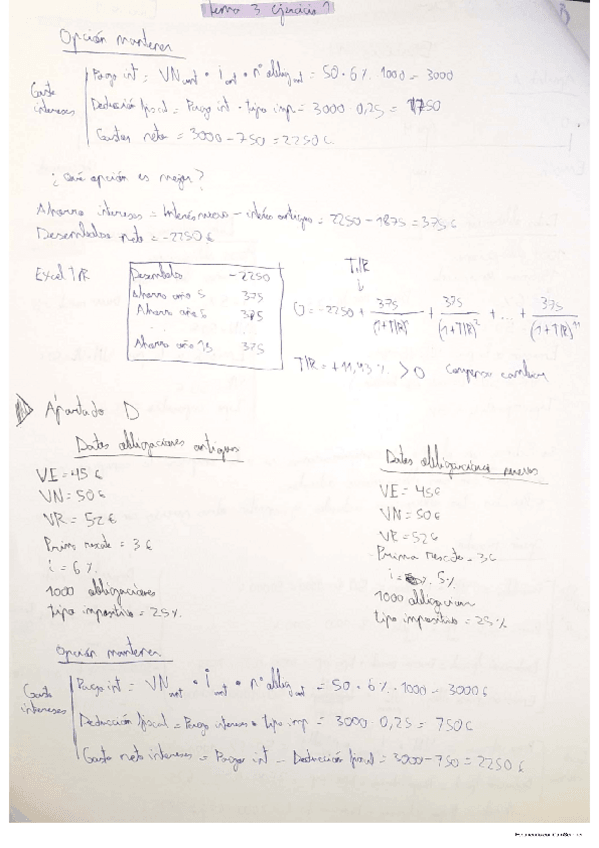 Tema 3 Ejercicio 1
Opción mantener
Gasto intereses
Pago int = VNant · iant · nº obligant = 50 · 6% · 1000 = 3000
Deducción fiscal = Pago int · tipo imp = 3000 · 0,25 = 750
Gastos neto = 3000 - 750 = 2250 €
¿Qué opción es mejor?
Ahorro intereses = Interés nuevo - interés antiguo = 2250 - 1875 = 375 €
Desembolso neto = -2250 €
Excel TIR
Desembolso -2250
Ahorro año 5 375
Ahorro año 5 375
Ahorro año 15 375
TIR
0 = -2250 + 375/(1+TIR) + 375/(1+TIR)² + ... + 375/(1+TIR)¹¹
TIR = +11,43% > 0 Compensa cambiar
Apartado D
Datos obligaciones antiguas
VE = 45 €
VN = 50 €
VR = 52 €
Prima rescate = 3 €
i = 6%
1000 obligaciones
tipo impositivo = 25%
Datos obligaciones nuevas
VE = 45 €
VN = 50 €
VR = 52 €
Prima rescate = 3 €
i = 5%
1000 obligaciones
tipo impositivo = 25%
Opción mantener
Gasto intereses
Pago int = VNant · iant · nº obligant = 50 · 6% · 1000 = 3000 €
Deducción fiscal = Pago intereses · tipo imp = 3000 · 0,25 = 750 €
Gasto neto intereses = Pagos int - Deducción fiscal = 3000 - 750 = 2250 €